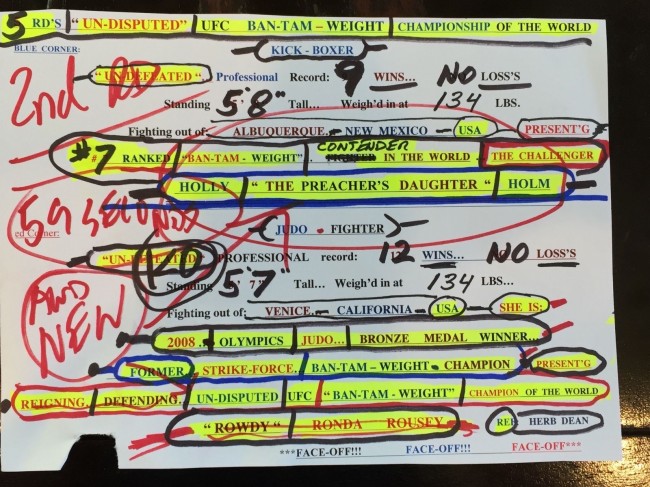 5 RD'S "UN-DISPUTED" UFC BAN-TAM-WEIGHT CHAMPIONSHIP OF THE WORLD
BLUE CORNER: KICK-BOXER
"UN-DEFEATED" Professional Record: 9 WINS... NO LOSS'S
2nd RD
Standing 5'8" Tall... Weigh'd in at 134 LBS.
Fighting out of: ALBUQUERQUE, - NEW MEXICO - USA PRESENT'G
#7 RANKED "BAN-TAM-WEIGHT". CONTENDER IN THE WORLD THE CHALLENGER
HOLLY "THE PREACHER'S DAUGHTER" HOLM
59 SECONDS
ed Corner: JUDO - FIGHTER
"UN-DEFEATED" PROFESSIONAL record: 12 WINS... NO LOSS'S
KO
Standing 5'7" Tall... Weigh'd in at 134 LBS...
AND NEW
Fighting out of: VENICE, - CALIFORNIA - USA - SHE IS:
2008.. OLYMPICS JUDO... BRONZE MEDAL WINNER...
FORMER STRIKE-FORCE, BAN-TAM-WEIGHT - CHAMPION PRESENT'G
REIGNING, DEFENDING, UN-DISPUTED UFC "BAN-TAM-WEIGHT" CHAMPION OF THE WORLD
"ROWDY" RONDA ROUSEY REF HERB DEAN
***FACE-OFF!!! FACE-OFF!!! FACE-OFF***